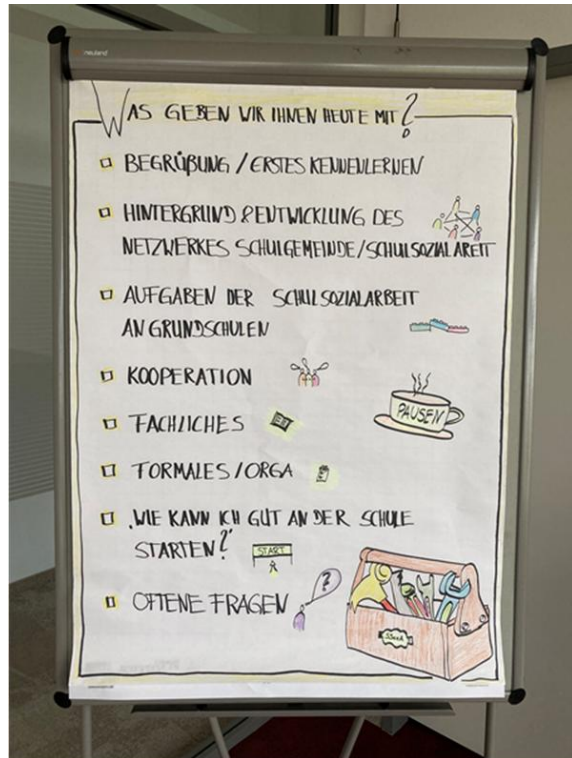 neuland
WAS GEBEN WIR IHNEN HEUTE MIT?
BEGRÜßUNG / ERSTES KENNENLERNEN
HINTERGRUND & ENTWICKLUNG DES
NETZWERKES SCHULGEMEINDE/SCHULSOZIALAREIT
AUFGABEN DER SCHULSOZIALARBEIT
AN GRUNDSCHULEN
KOOPERATION
PAUSEN
FACHLICHES
FORMALES/ORGA
'WIE KANN ICH GUT AN DER SCHULE
STARTEN?'
START
OFFENE FRAGEN
?